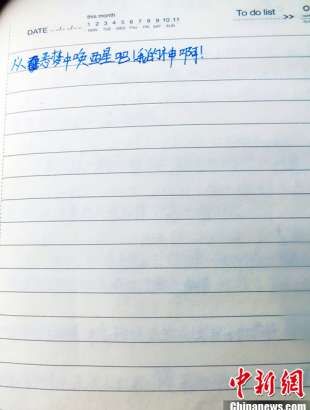 this month
To do list >>
DATE 1 2 3 4 5 6 7 8 9 10 11
MON TUE WED THU FRI SAT SUN
从恶梦中唤醒吧!我的神啊!
中新网
Chinanews.com